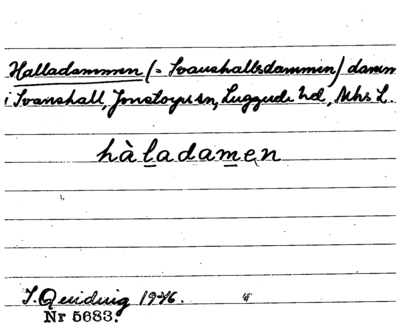 Halladammen (= Svanshallsdammen) damm
i Svanshall, Jonstorps sn, Luggude hd, Mhs L.
hàladamen
I. Quiding 1946.
Nr 5683.